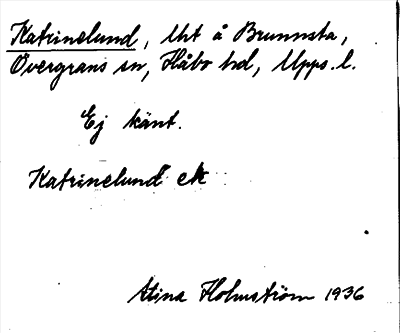 Katrinelund, lht å Brunnsta,
Övergrans sn, Håbo hd, Upps. l.
Ej känt.
Katrinelund ek
Stina Holmström 1936